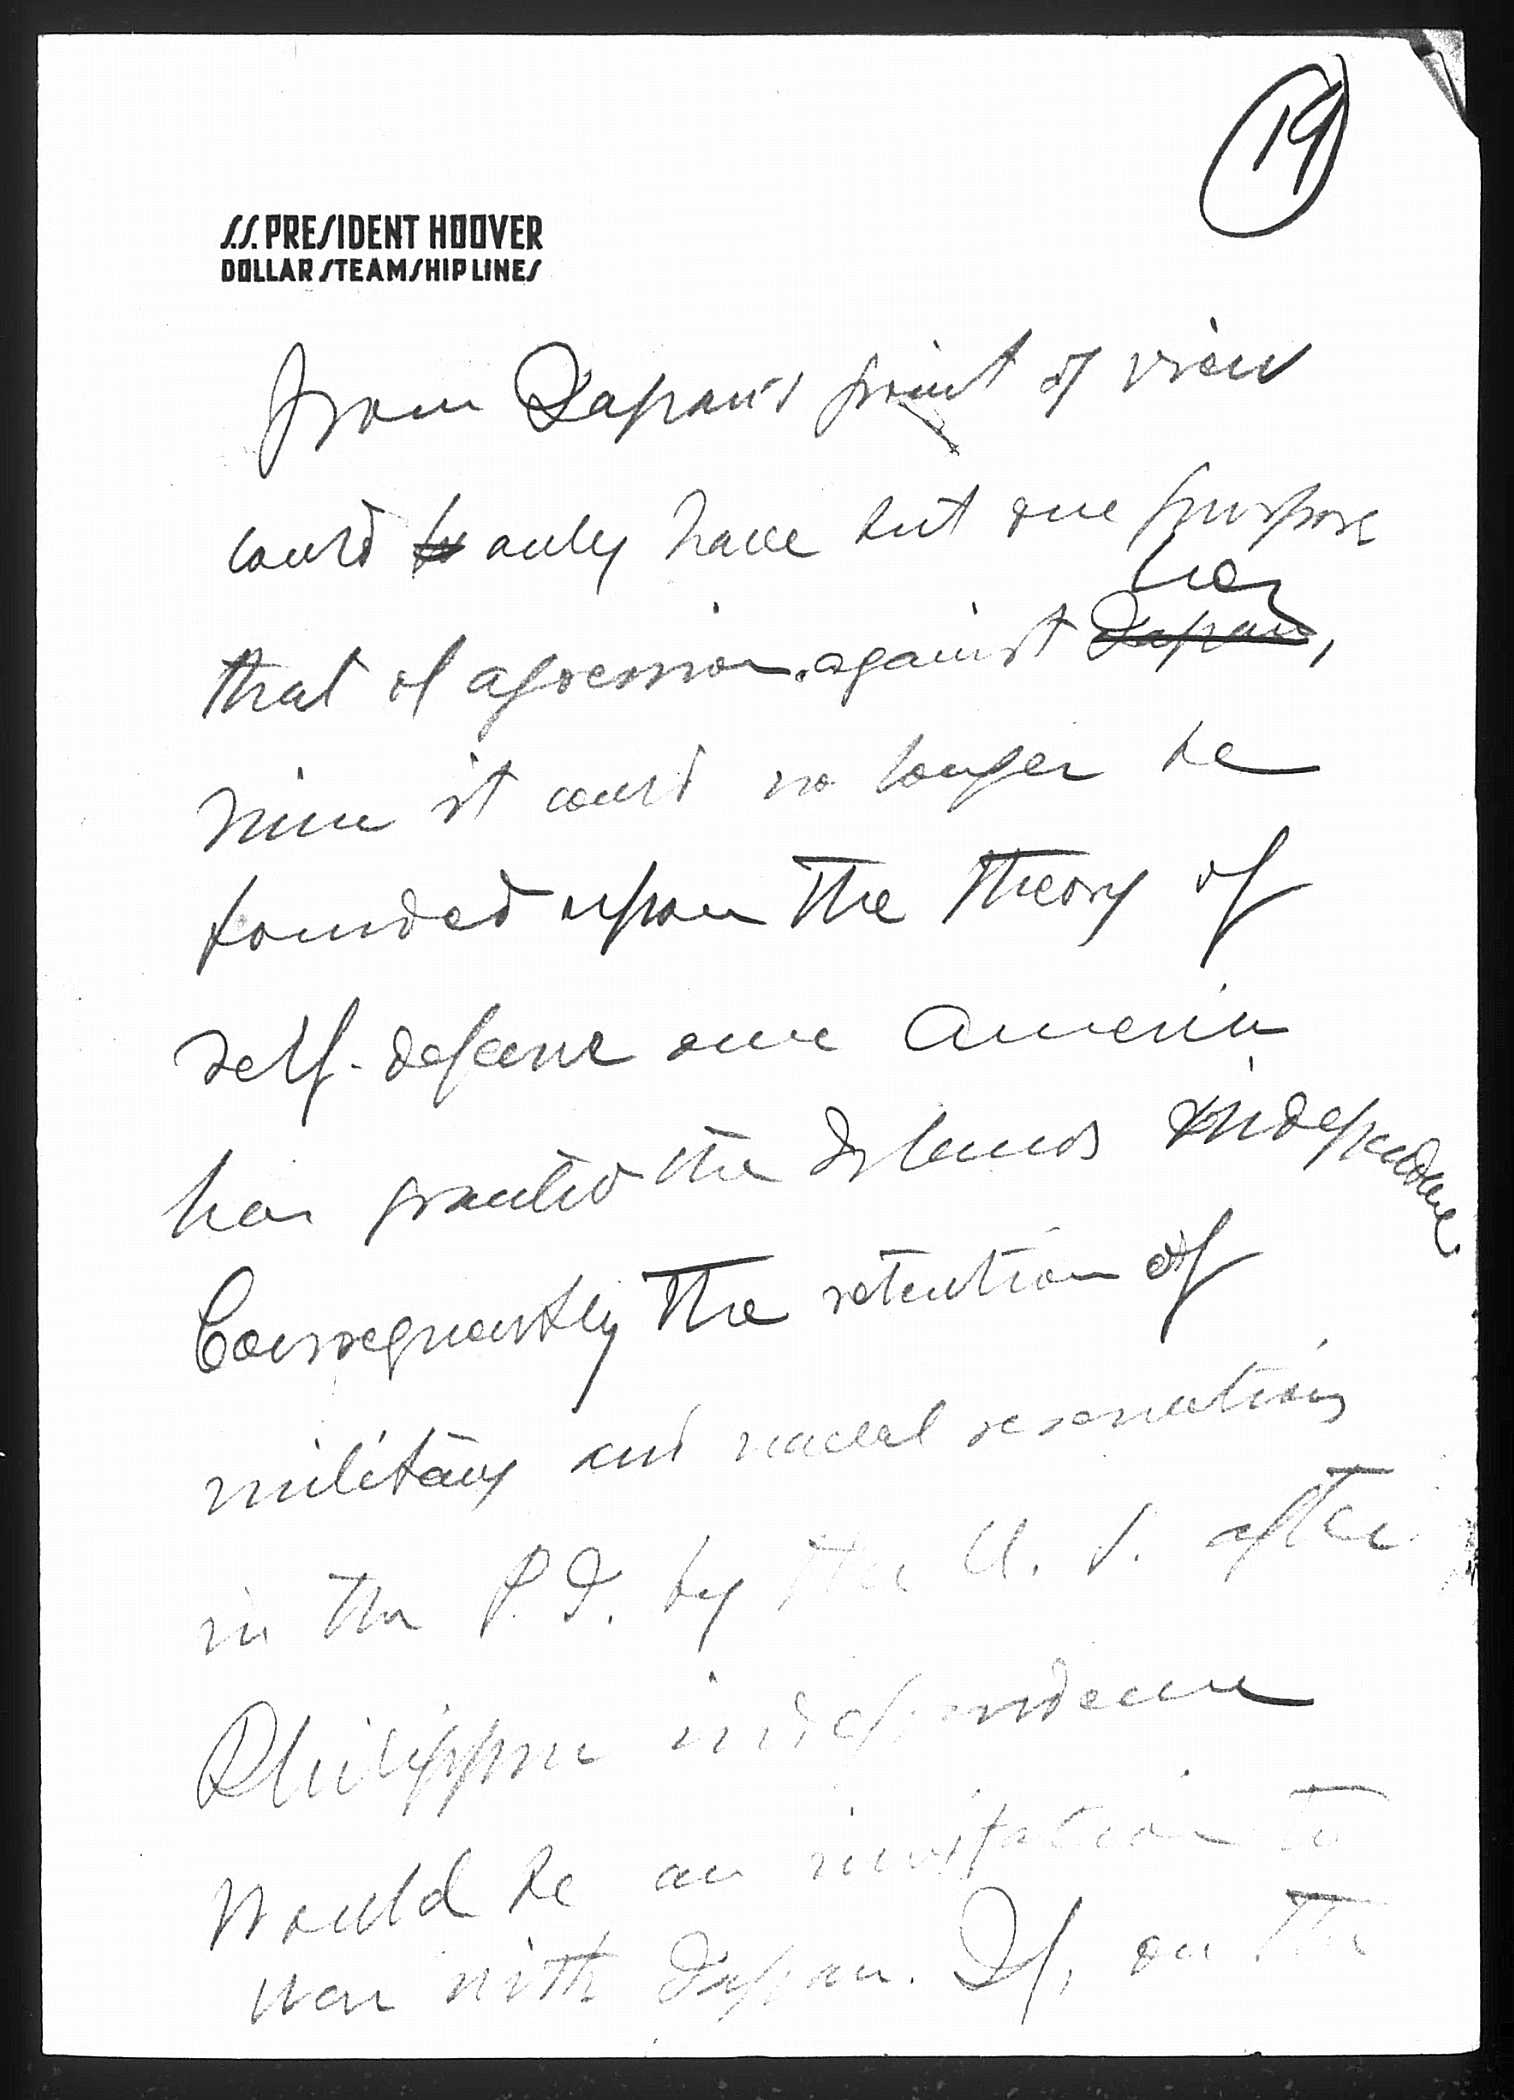 19
S.S. PRESIDENT HOOVER
DOLLAR STEAMSHIP LINES
from Japan's point of view
could only have but one purpose
her
that of agression against Japan,
since it could no longer be
founded upon the theory of
self-defense once America
has granted the Islands independence.
Consequently the retention of
military and naval reservations
in the P.I. by the U.S. after
Philippine independence
would be an invitation to
war with Japan. If, on the